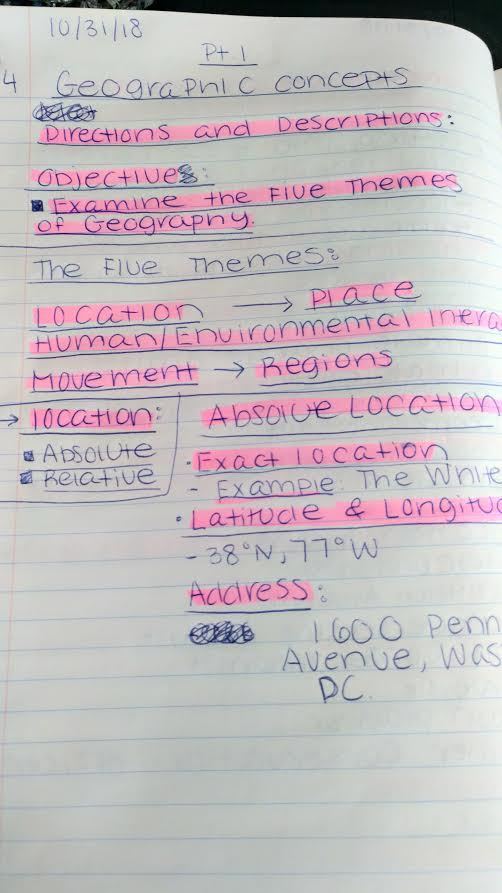 10/31/18
Pt 1
4 Geographic concepts
Directions and Descriptions:
Objectives:
Examine the Five Themes
of Geography.
The Five Themes:
Location → Place
Human/Environmental Intera
Movement → Regions
→ location:
Absolute
Relative
Absolue Location
Exact location
- Example: The White
Latitude & Longitud
- 38°N, 77°W
Address:
1600 Penn
Avenue, Was
DC.